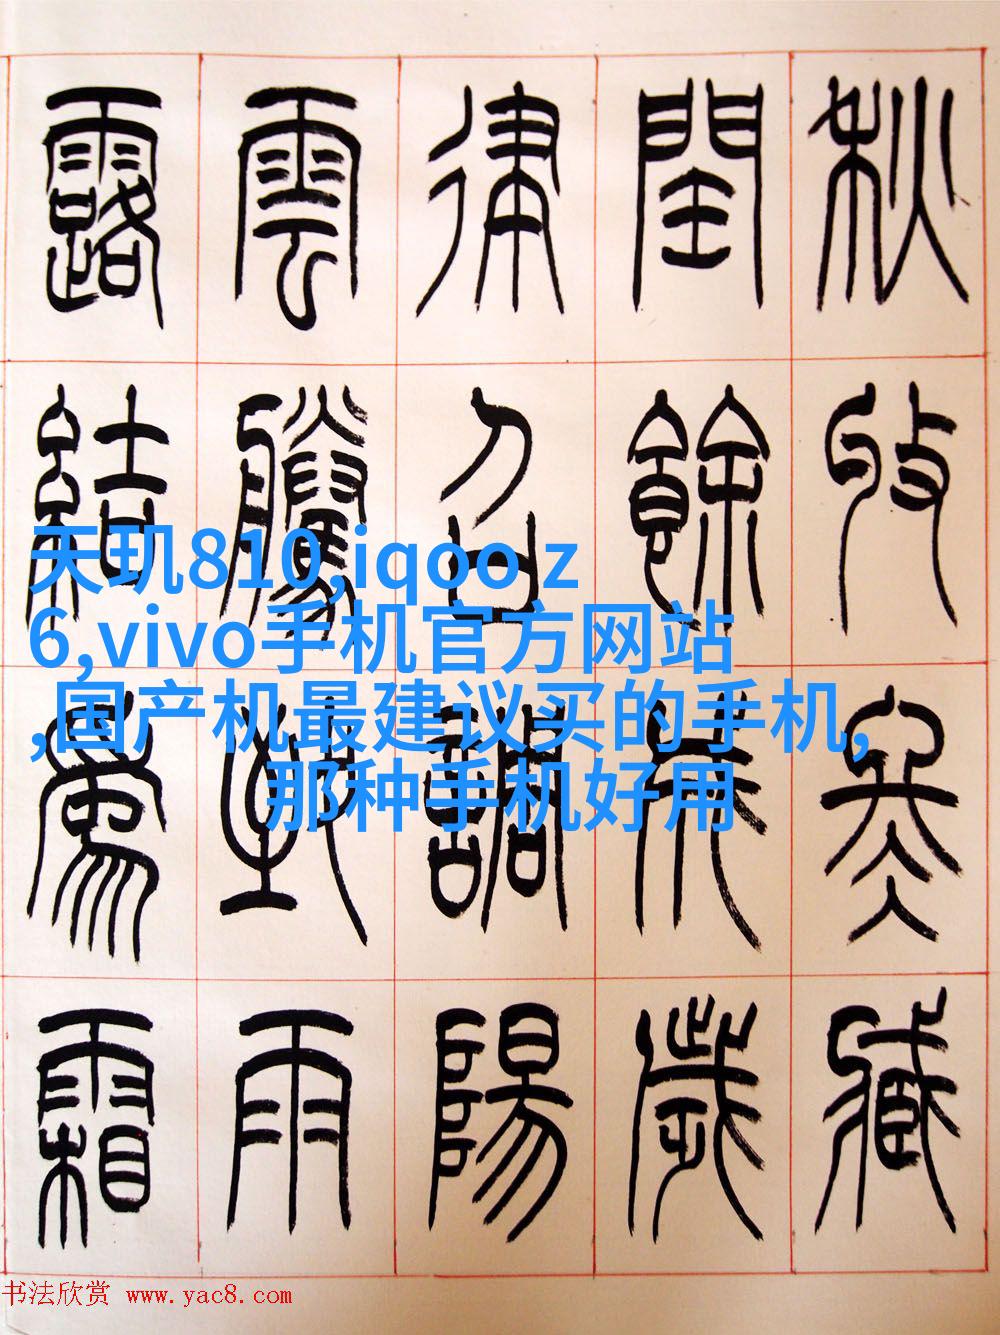 秋收冬藏
閏餘成歲
律召調陽
雲騰致雨
露結爲霜
天玑810,iqoo z
6,vivo手机官方网站
,国产机最建议买的手机,
那种手机好用
书法欣赏 www.yac8.com